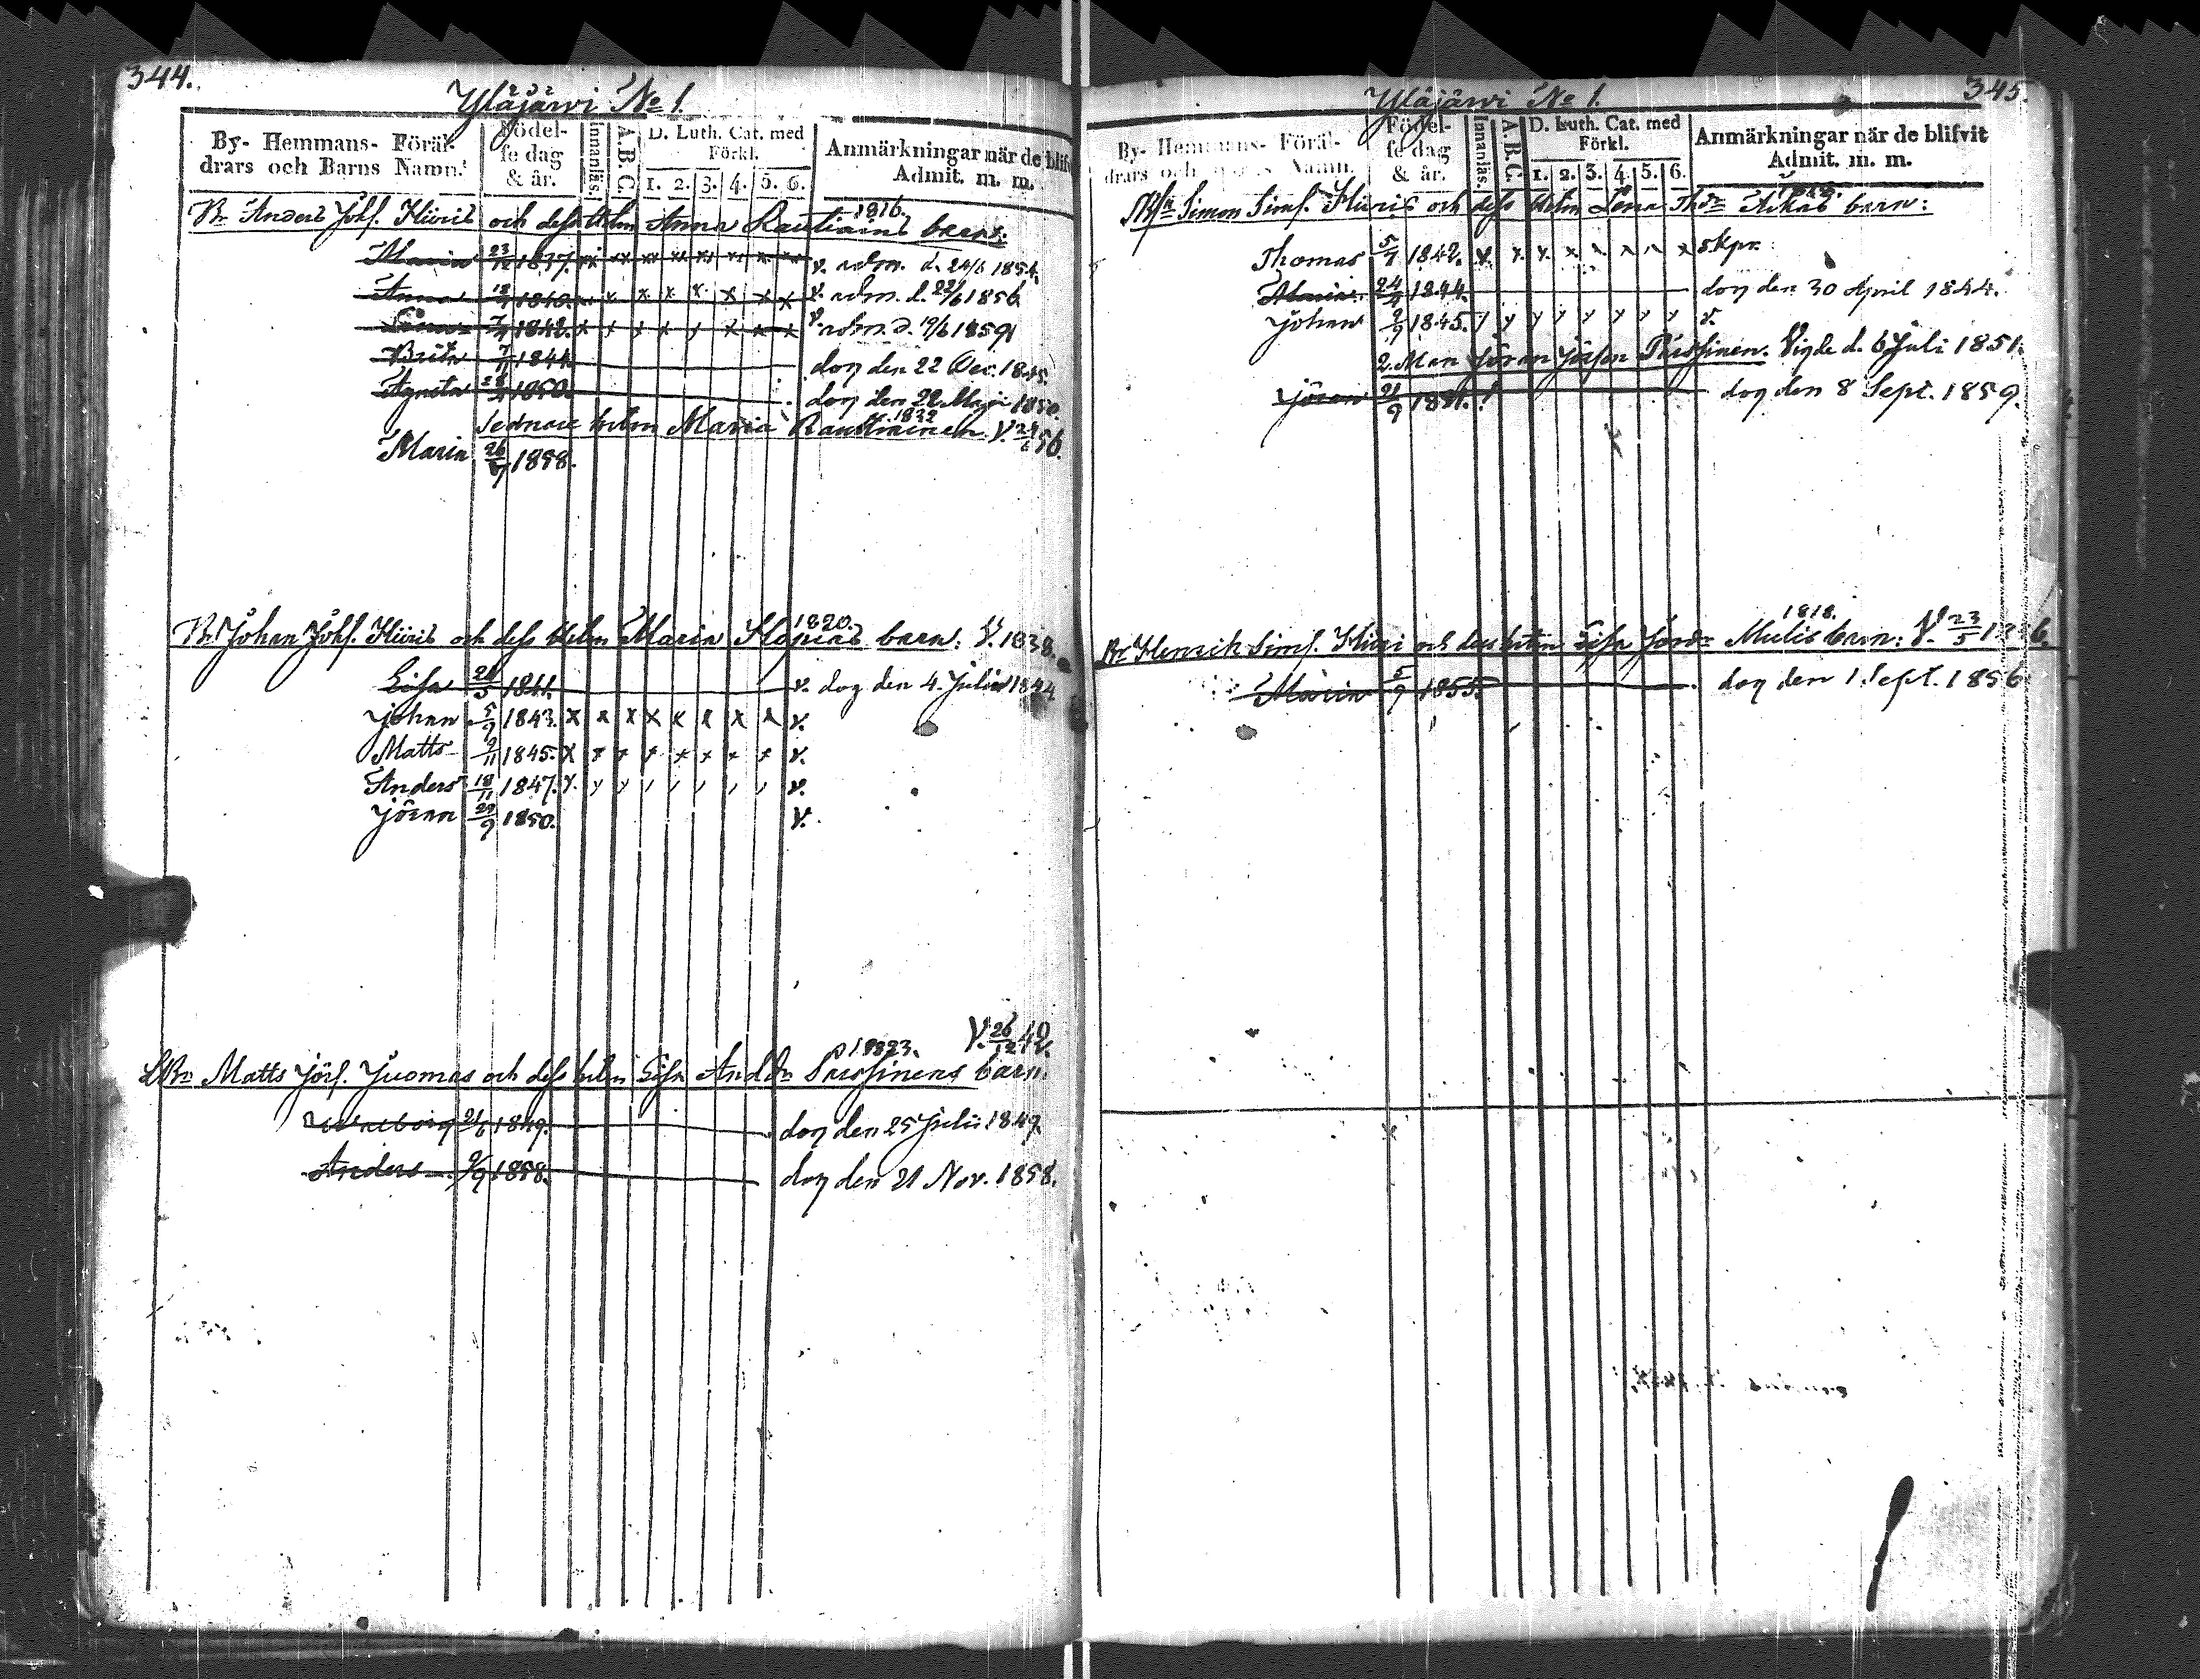 344.
Yläjärwi No 1.
By- Hemmans- Föräl-
drars och Barns Namn.
Födel-
se dag
& år.
Innanläs.
A.B.C.
D. Luth. Cat. med
Förkl.
1. 2. 3. 4. 5. 6.
Anmärkningar när de blifv
Admit. m. m.
1816.
Br Anders Johs. Hiiris och dess hn Anna Rautiains barn:
Maria 23/12 1837. x xx xx xx x x x x v. adm. d. 24/6 1854.
Anna 18/ 1840. x x x x x x x v. adm. d. 22/6 1856
1842. x x x x x x x x v. adm. d. 19/6 1859
Brita 7/ 1844. dog den 22 Dec. 1845.
Agneta 1850. dog den 22 Maji 1850.
1832
Sednare hn Maria Rautiainen V. 24/6 56.
Maria 26/ 1858.
1820.
Br Johan Johs. Hiiris och dess hn Maria barn: V. 1838.
Lisa 1841. v. dog den 4. Julii 1844
Johan 5/ 1843. x x x x x x x x v.
Matts 9/11 1845. x x x x x x x x v.
Anders 18/11 1847. v.
Jöran 29/9 1850. v.
1823. V. 26/12 42.
Br Matts Jörs. Juomas och dess hn Lisa And.Dr Pussinens barn.
Walborg 21/6 1849. dog den 25 Julii 1849.
Anders 9/9 1858. dog den 21 Nov. 1858.
345.
Yläjärwi No 1.
By- Hemmans- Föräl-
drars och Barns Namn.
Födel-
se dag
& år.
Innanläs.
A.B.C.
D. Luth. Cat. med
Förkl.
1. 2. 3. 4. 5. 6.
Anmärkningar när de blifvit
Admit. m. m.
Simon Sims. Hiiris och dess hn Lena Thsdr barn:
Thomas 5/ 1842. skpr.
Maria 24/4 1844. dog den 30 April 1844.
Johan 2/9 1845. y y y y y y y y v.
2. Man Jöran Jörsson Pussinen. Vigde d. 6 Juli 1851.
Jöran 21/9 1851. dog den 8 Sept. 1859.
1818.
Br Henrik Sims. Hiiri och dess hn Lisa Jörsdr Mulis barn: V. 23/5
Maria 5/9 1855. dog den 1 Sept. 1856